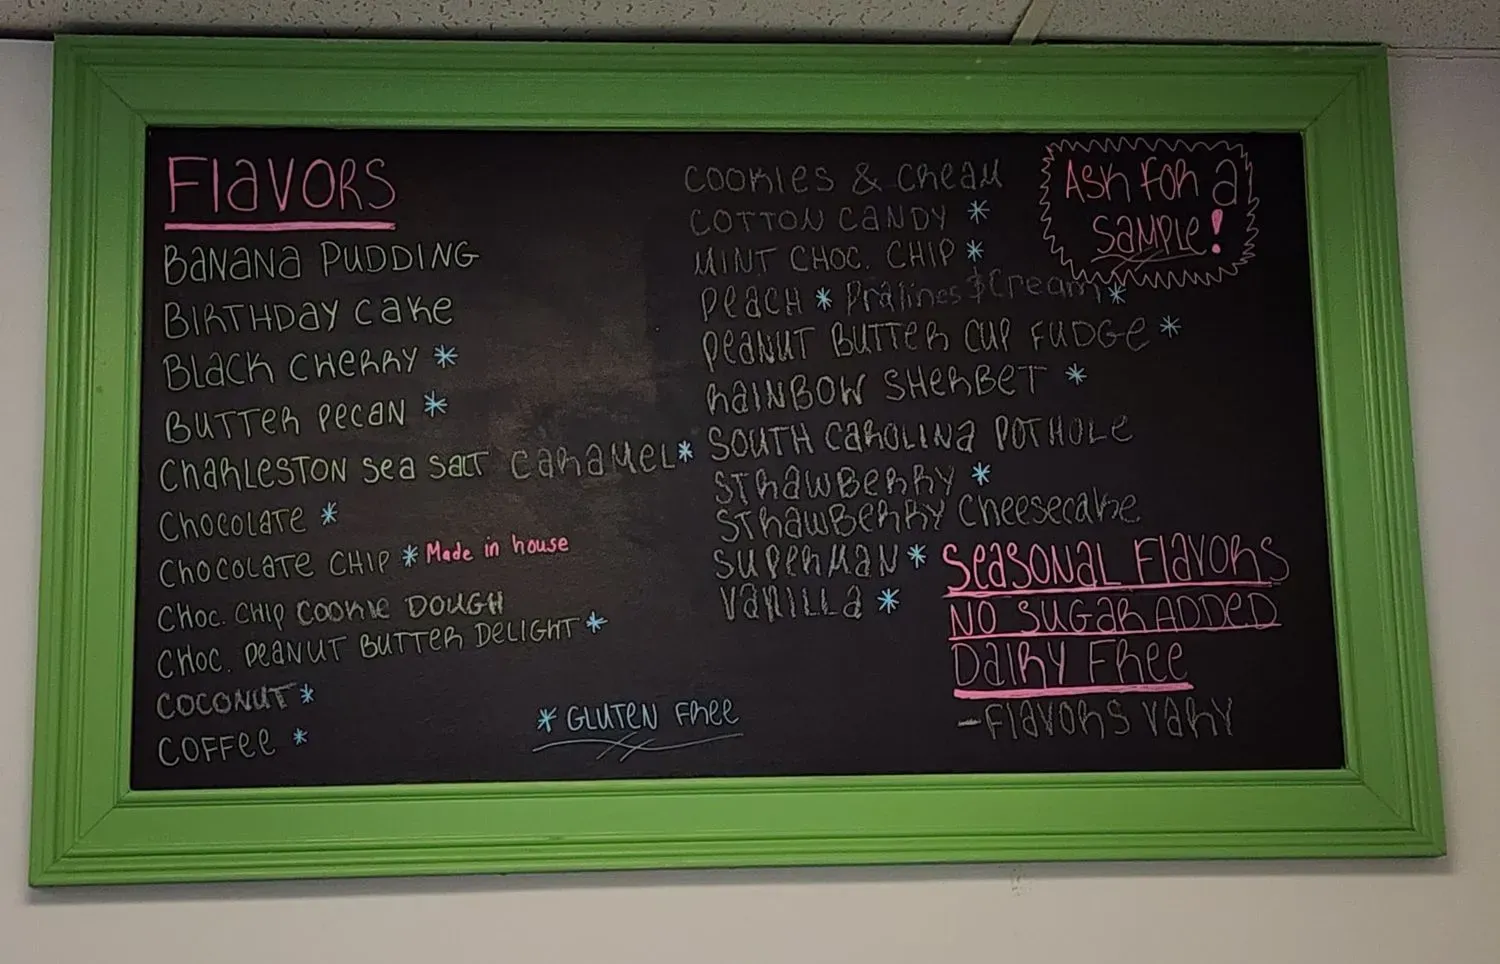 FLAVORS
BANANA PUDDING
BIRTHDAY CAKE
BLACK CHERRY *
BUTTER PECAN *
CHARLESTON SEA SALT CARAMEL *
CHOCOLATE *
CHOCOLATE CHIP * Made in house
CHOC. CHIP COOKIE DOUGH
CHOC. PEANUT BUTTER DELIGHT *
COCONUT *
COFFEE *
* GLUTEN FREE
COOKIES & CREAM
COTTON CANDY *
MINT CHOC. CHIP *
PEACH * Pralines & Cream *
PEANUT BUTTER CUP FUDGE *
RAINBOW SHERBET *
SOUTH CAROLINA POTHOLE
STRAWBERRY *
STRAWBERRY CHEESECAKE
SUPERMAN *
VANILLA *
ASK FOR A
SAMPLE!
SEASONAL FLAVORS
NO SUGAR ADDED
DAIRY FREE
- FLAVORS VARY